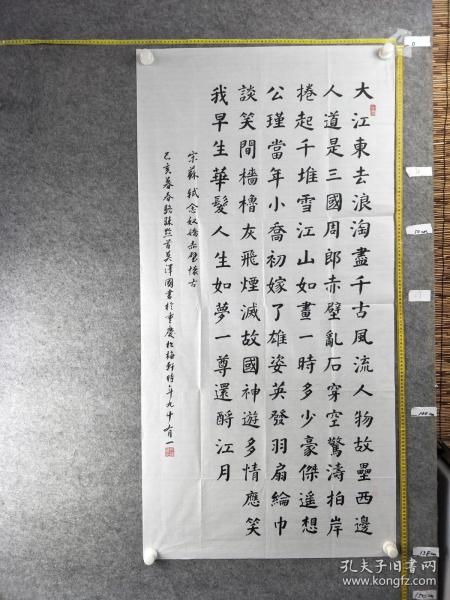 大江東去浪淘盡千古風流人物故壘西邊
人道是三國周郎赤壁亂石穿空驚濤拍岸
捲起千堆雪江山如畫一時多少豪傑遙想
公瑾當年小喬初嫁了雄姿英發羽扇綸巾
談笑間檣櫓灰飛煙滅故國神遊多情應笑
我早生華髮人生如夢一尊還酹江月
宋蘇軾念奴嬌赤壁懷古
己亥暮春澤國書於重慶松梅軒時年九十有一
0
50cm
100cm
138cm
150cm
孔夫子旧书网
www.kongfz.com